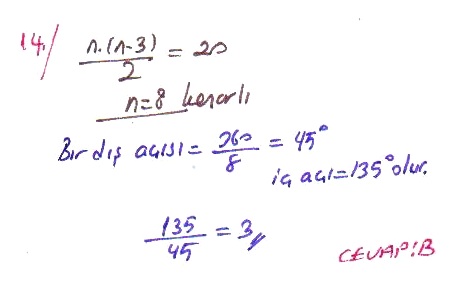 14/ n.(n-3)/2 = 20
n=8 kenarlı
Bir dış açısı = 360/8 = 45°
iç açı=135° olur.
135/45 = 3//
CEVAP:B